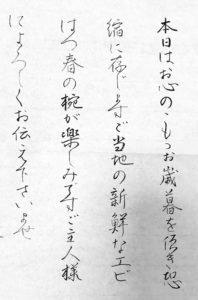 本日はお心のこもったお歳暮を頂き恐
縮に存じますご当地の新鮮なエビ
はつ春の椀が楽しみですご主人様
によろしくお伝え下さいませ